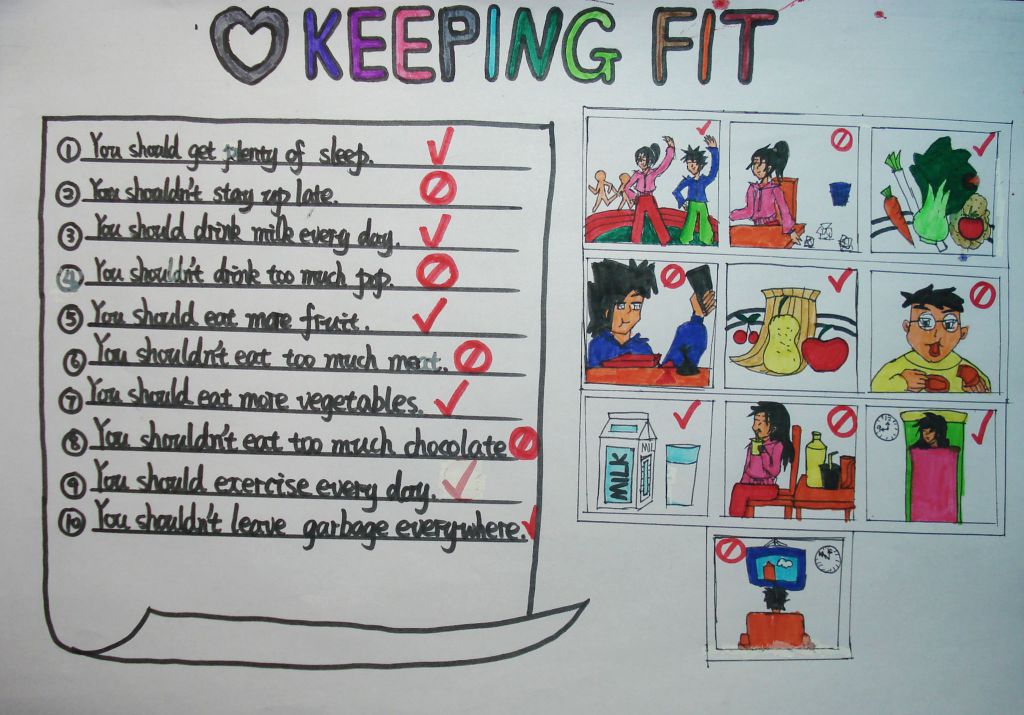 KEEPING FIT
① You should get plenty of sleep.
② You shouldn't stay up late.
③ You should drink milk every day.
④ You shouldn't drink too much pop.
⑤ You should eat more fruit.
⑥ You shouldn't eat too much meat.
⑦ You should eat more vegetables.
⑧ You shouldn't eat too much chocolate
⑨ You should exercise every day.
⑩ You shouldn't leave garbage everywhere.
MILK